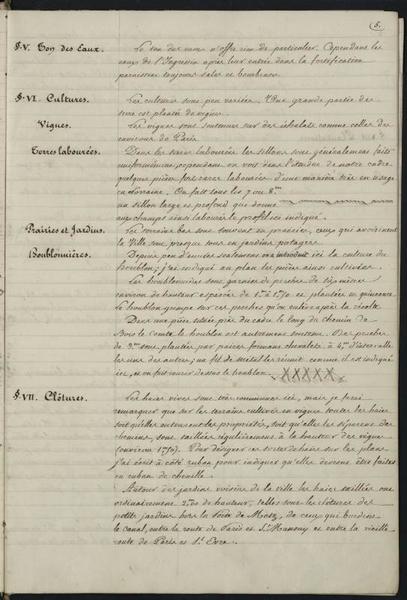 5.
§. V. Ton des Eaux. Le ton des eaux n'offre rien de particulier. Cependant les
eaux de l'Ingressin après leur entrée dans la fortification
paraissent toujours sales et bourbeuses.
§. VI. Cultures. Les cultures sont peu variées. Une grande partie des
terres est plantée de vignes.
Vignes. Les vignes sont soutenues sur des échalats comme celles des
environs de Paris.
Terres labourées. Dans les terres labourées les sillons sont généralement faits
uniformément, cependant on voit dans l'étendue de notre cadre
quelques pièces fort rares labourées d'une manière très en usage
en Lorraine. On fait tous les 7 ou 8.m
un sillon large et profond qui donne
aux champs ainsi labourés le profil ici indiqué.
Prairies et Jardins. Les terrains bas sont souvent en prairies, ceux qui avoisinent
la Ville sont presque tous en jardins potagers.
Houblonnières. Depuis peu d'années seulement on a introduit ici la culture du
houblon; j'ai indiqué au plan les pièces ainsi cultivées.
Les houblonnières sont garnies de perches de
environ de hauteur espacées de 1.m à 1.m50 et plantées en quinconce
le houblon grimpe sur ces perches qu'on enlève après la récolte
Dans une pièce située près du cadre le long du chemin de
Bois le Comte le houblon est autrement soutenu. Des perches
de 3.m sont plantées par paires formant chevalets à 4.m d'intervalle
les uns des autres; un fil de métal les réunit comme il est indiqué
ici, et on fait courir dessus le houblon. XXXXX
§. VII. Clôtures. Les haies vives sont très communes ici, mais je ferai
remarquer que sur les terrains cultivés en vignes toutes les haies
soit qu'elles entourent les propriétés, soit qu'elles les séparent des
chemins, sont taillées régulièrement à la hauteur des vignes
(environ 1.m50). Pour désigner ces sortes de haies sur les plans
j'ai écrit à côté ruban pour indiquer qu'elles devront être faites
en ruban de chenille.
Autour des jardins voisins de la ville les haies taillées ont
ordinairement de hauteur, telles sont les clôtures des
petits jardins hors la Porte de Metz, de ceux qui bordent
le canal, entre la route de Paris et St. Mansuy et entre la vieille
route de Paris et St. Evre.